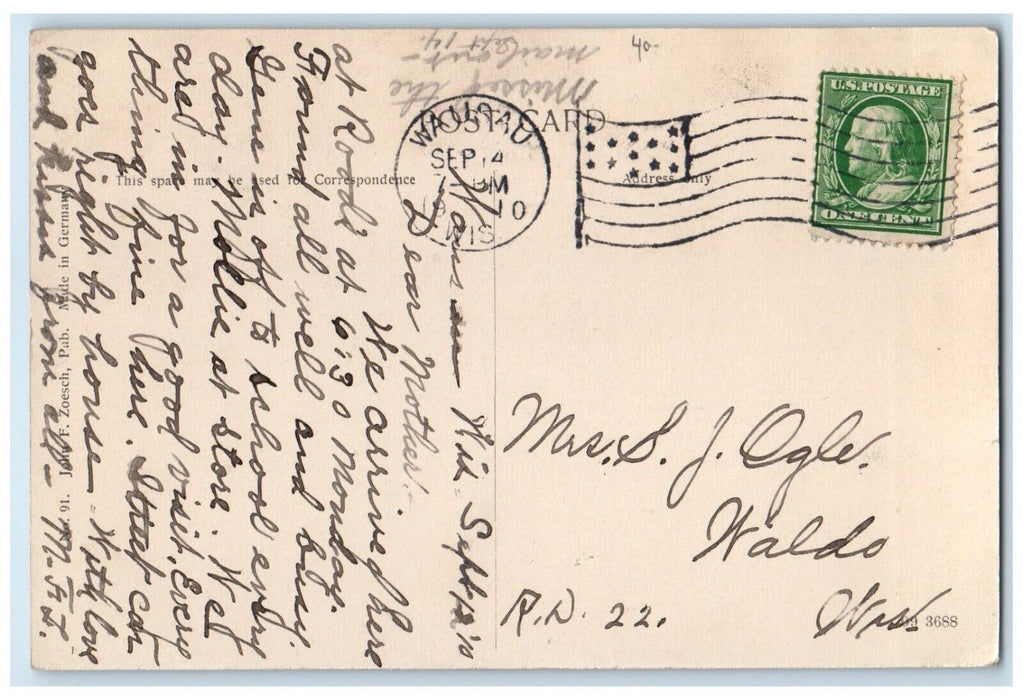 40-
Missed the
mail out -
Sept 14.
POST CARD
WAUSAU
SEP 14
7-PM
1910
WIS.
U.S. POSTAGE
ONE CENT
This space may be used for Correspondence
Address only
Wis - Sept 12 '10
Dear Mother:-
We arrived here
at Rood's at 6:30 Monday.
Found all well and busy
Gene is off to school every
day - Mollie at store. We
are in for a good visit. Every
thing fine here. Street car
goes right by house - With love
and from all - M.
Mrs. S. J. Ogle.
Waldo
R.D. 22. Wis.
No. 91. John F. Zoesch, Pub. Made in Germany
3688